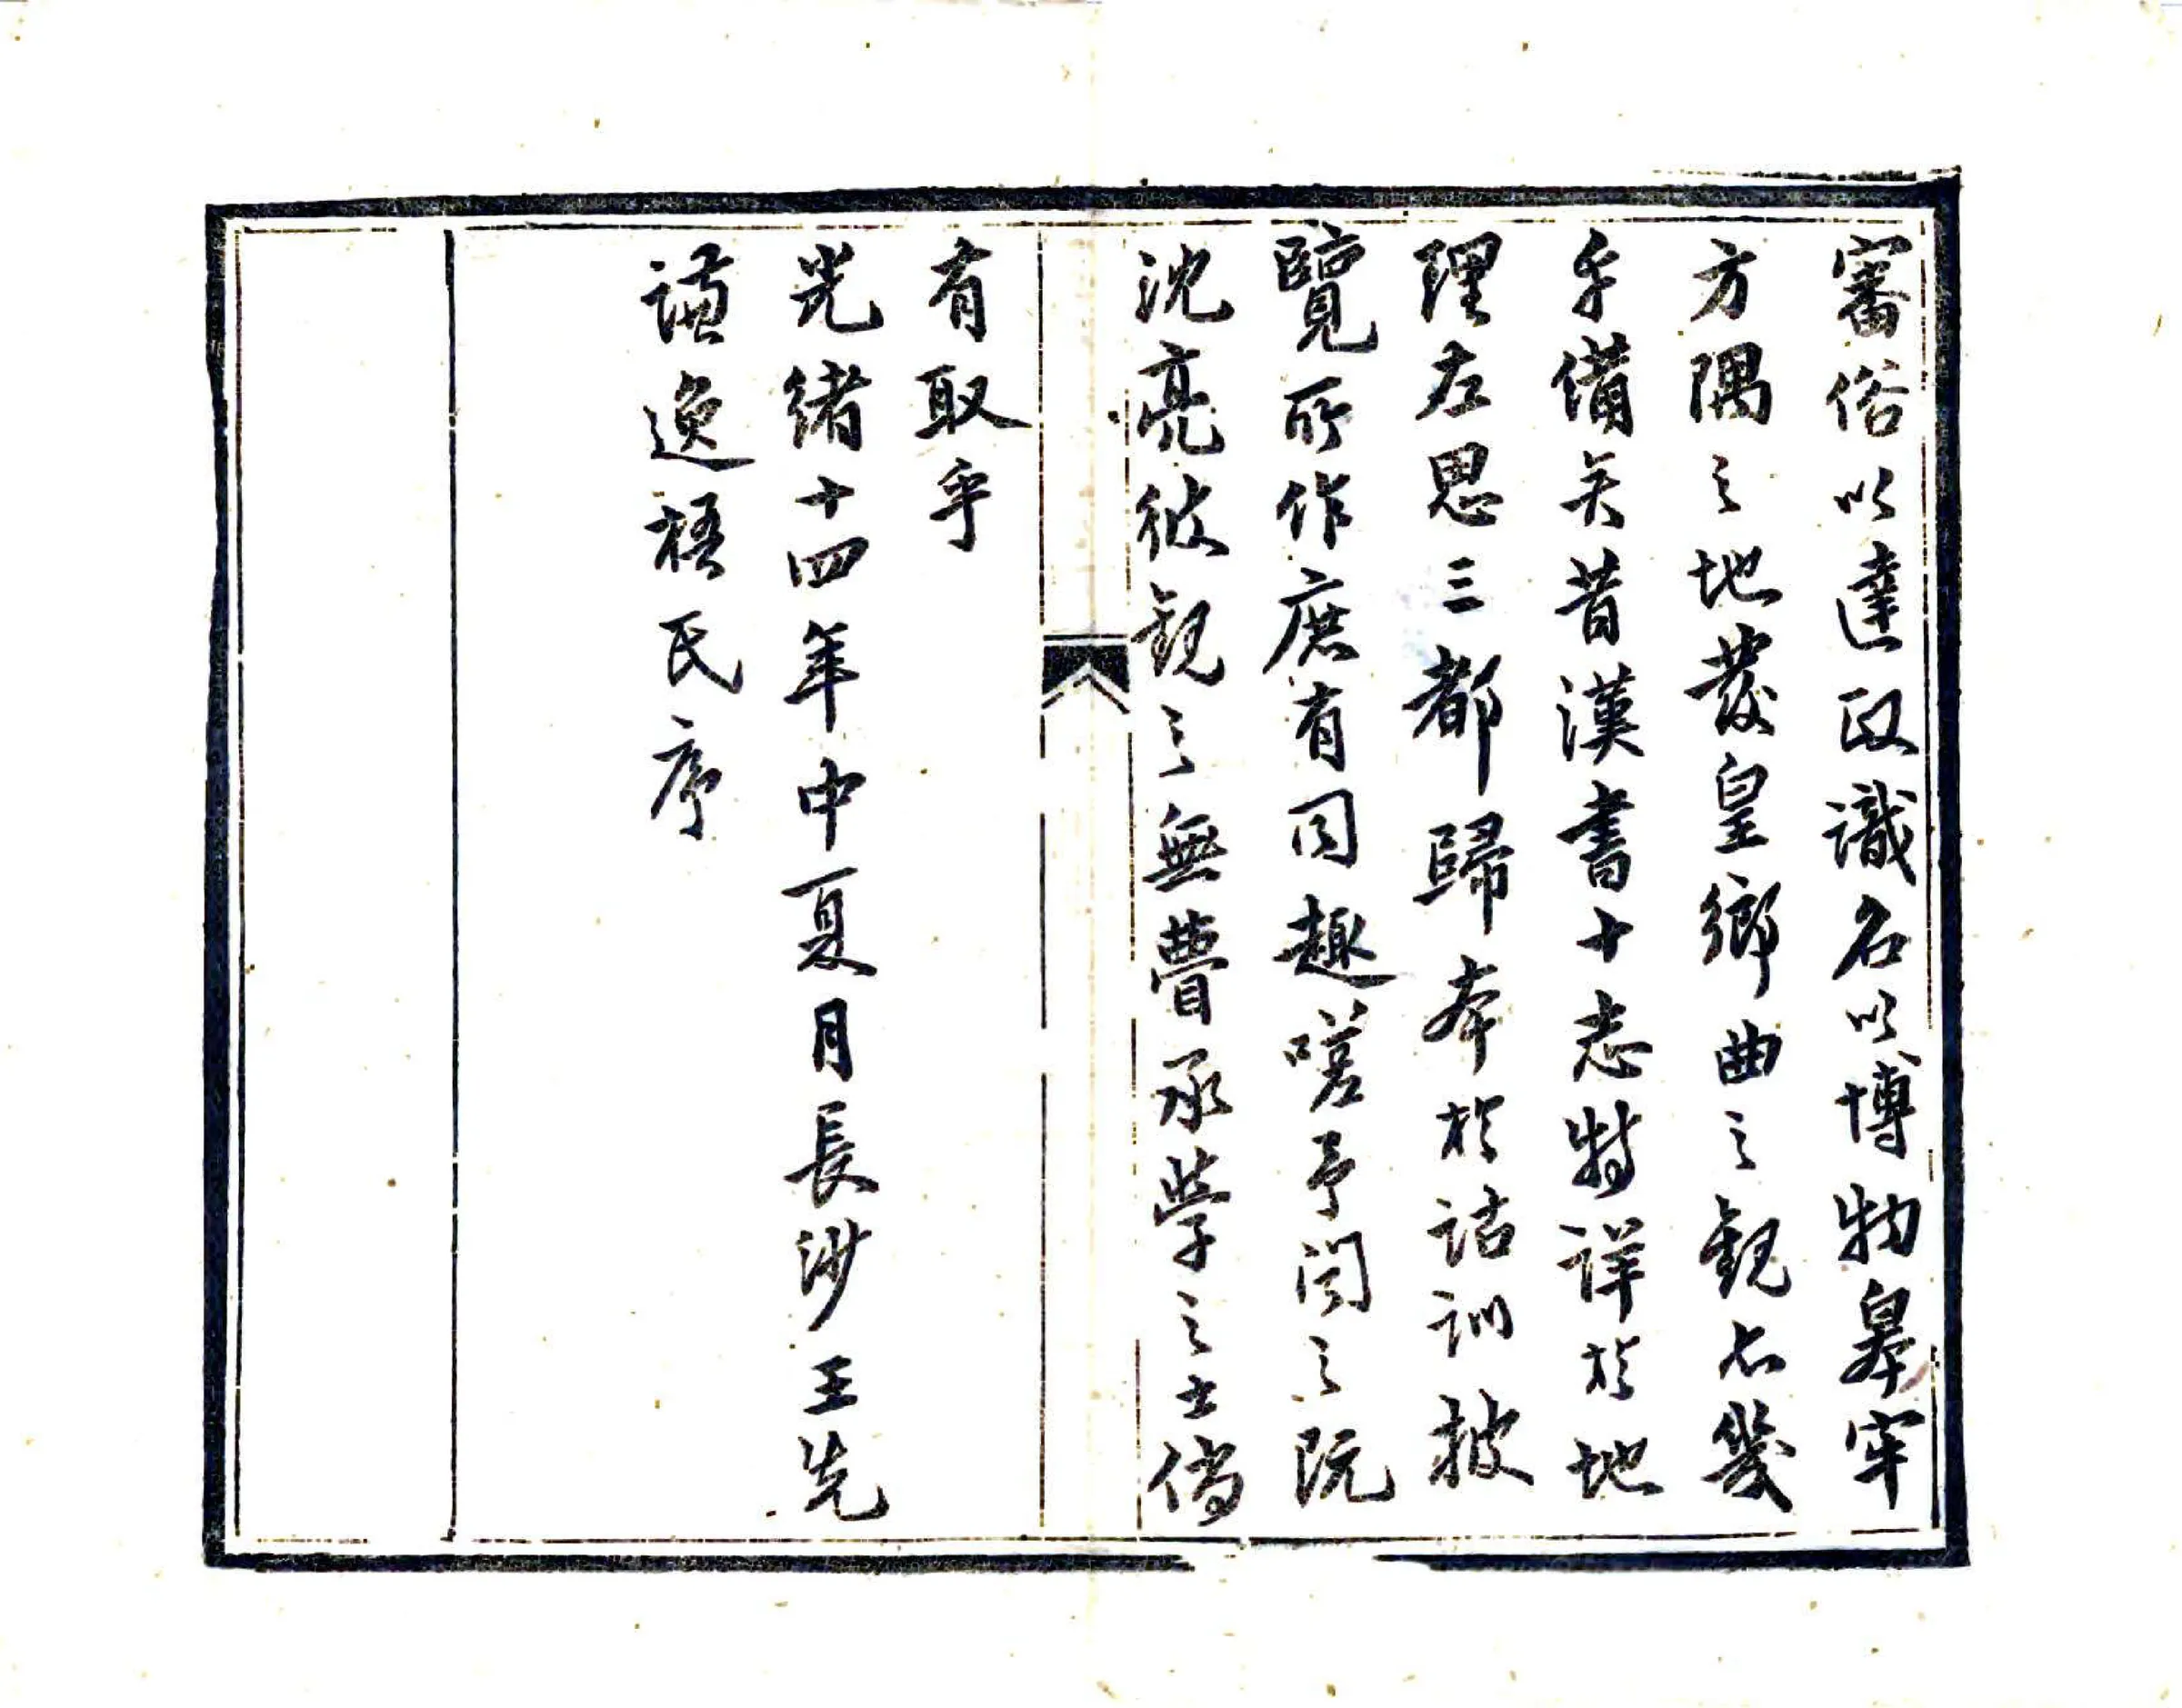 審俗以達政識名以博物皋牢
方隅之地發皇鄉曲之觀亦幾
乎備矣昔漢書十志特詳於地
理左思三都歸本於詁訓披
覽所作庶有同趣嗟予聞之阮
沈亮彼觀之無瞢承學之士倘
有取乎
光緒十四年中夏月長沙王先
謙逸梧氏序